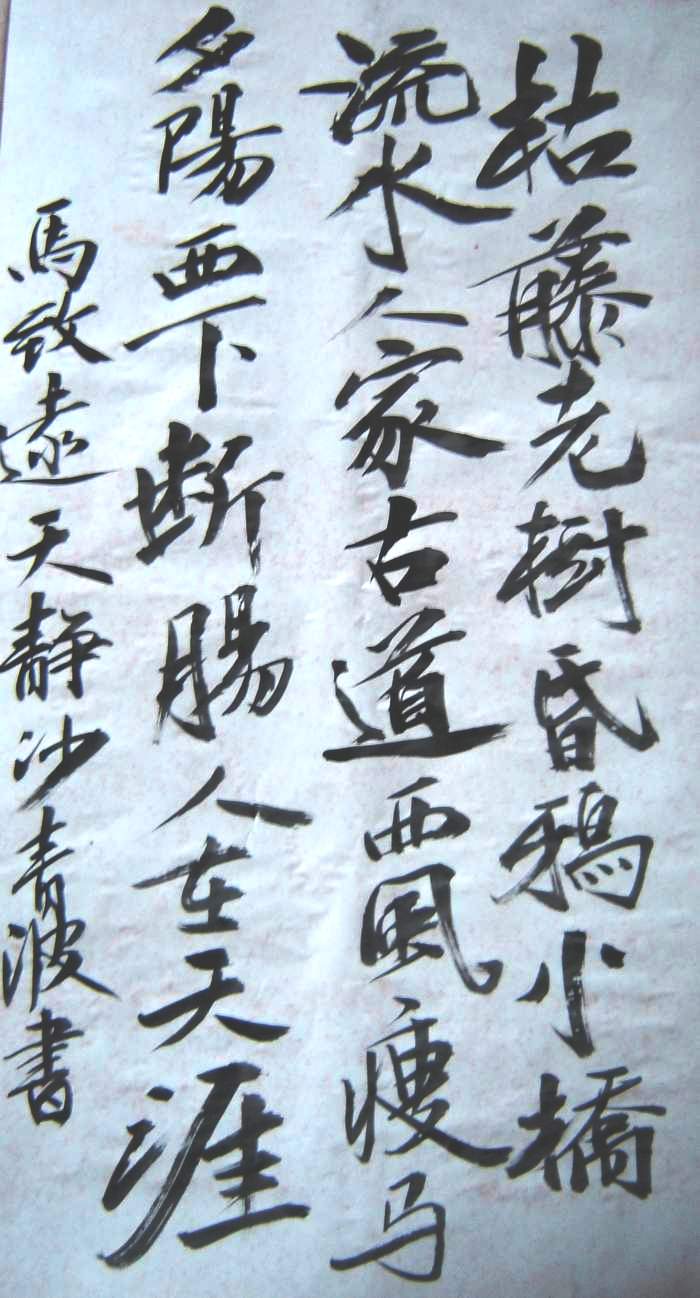 枯藤老樹昏鴉小橋
流水人家古道西風瘦马
夕陽西下断腸人在天涯
馬致遠天靜沙青波書